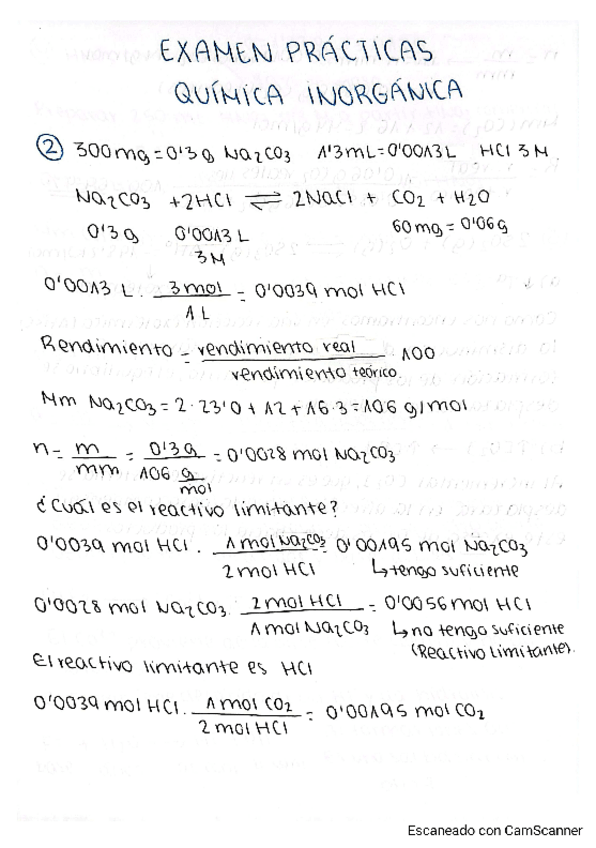 EXAMEN PRÁCTICAS
QUÍMICA INORGÁNICA
② 300mg = 0'3g Na₂CO₃ 1'3mL = 0'0013L HCl 3M
Na₂CO₃ + 2HCl ⇌ 2NaCl + CO₂ + H₂O
0'3g 0'0013 L 60mg = 0'06g
3M
0'0013 L · 3 mol / 1 L = 0'0039 mol HCl
Rendimiento = rendimiento real / rendimiento teórico · 100
Mm Na₂CO₃ = 2·23'0 + 12 + 16·3 = 106 g/mol
n = m / mm = 0'3g / 106 g/mol = 0'0028 mol Na₂CO₃
¿Cuál es el reactivo limitante?
0'0039 mol HCl · 1 mol Na₂CO₃ / 2 mol HCl = 0'00195 mol Na₂CO₃
↳ tengo suficiente
0'0028 mol Na₂CO₃ · 2 mol HCl / 1 mol Na₂CO₃ = 0'0056 mol HCl
↳ no tengo suficiente
(Reactivo Limitante).
El reactivo limitante es HCl
0'0039 mol HCl · 1 mol CO₂ / 2 mol HCl = 0'00195 mol CO₂
Escaneado con CamScanner